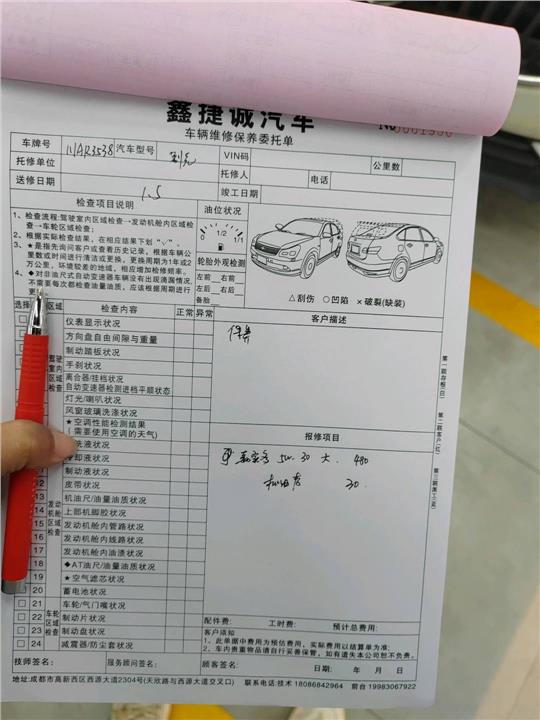 鑫捷诚汽车
车辆维修保养委托单
No 0001990
车牌号 川AR3538 汽车型号 VIN码 公里数
托修单位 托修人 电话
送修日期 1.5 竣工日期
检查项目说明
1、检查流程:驾驶室内区域检查→发动机舱内区域检查→车轮区域检查;
2、根据实际检查结果,在相应结果下划"√"。
3、★是指先询问客户或查看历史记录,根据车辆公里数或时间进行清洁或更换,更换周期为1年或2万公里,环境较差的地域,相应增加检修频率。
4、◆对非油尺式自动变速器车辆没有出现滴漏情况,不需要每次都检查油量油质,应该根据周期进行更
油位状况
0 1/2 1/1
轮胎外观检测
左前 右前
左后 右后
备胎
△刮伤 ○凹陷 ×破裂(缺装)
选择 区域 检查内容 正常 异常
客户描述
保养
驾驶室内区域检查
仪表显示状况
方向盘自由间隙与重量
制动踏板状况
手刹状况
离合器/挂档状况
自动变速器检测进档平顺状态
灯光/喇叭状况
风窗玻璃洗涤状况
★空调性能检测结果
(需要使用空调的天气)
洗液状况
却液状况
11 制动液状况
12 皮带状况
发动机舱区域检查
13 机油尺/油量油质状况
14 上部机脚胶状况
15 发动机舱内管路状况
16 发动机舱内线路状况
17 发动机舱内油渍状况
18 ◆AT油尺/油量油质状况
19 ★空气滤芯状况
20 蓄电池状况
车轮区域检查
21 车轮/气门嘴状况
22 制动片状况
23 制动盘状况
24 减震器/防尘套状况
报修项目
5W-30 大. 480
30
第一联存根(白)
第二联客户(红)
配件费: 工时费: 预计总费用:
客户须知
1、此单据中费用为预估费用,实际费用以结算单为准;
2、车内贵重物品请自行妥善保管,如有遗失本公司恕不负责。
技师签名: 服务顾问签名: 顾客签名: 日期: 年 月 日
地址:成都市高新西区西源大道2304号(天欣路与西源大道交叉口) 联系电话:技术 18086842964 前台 19983067922